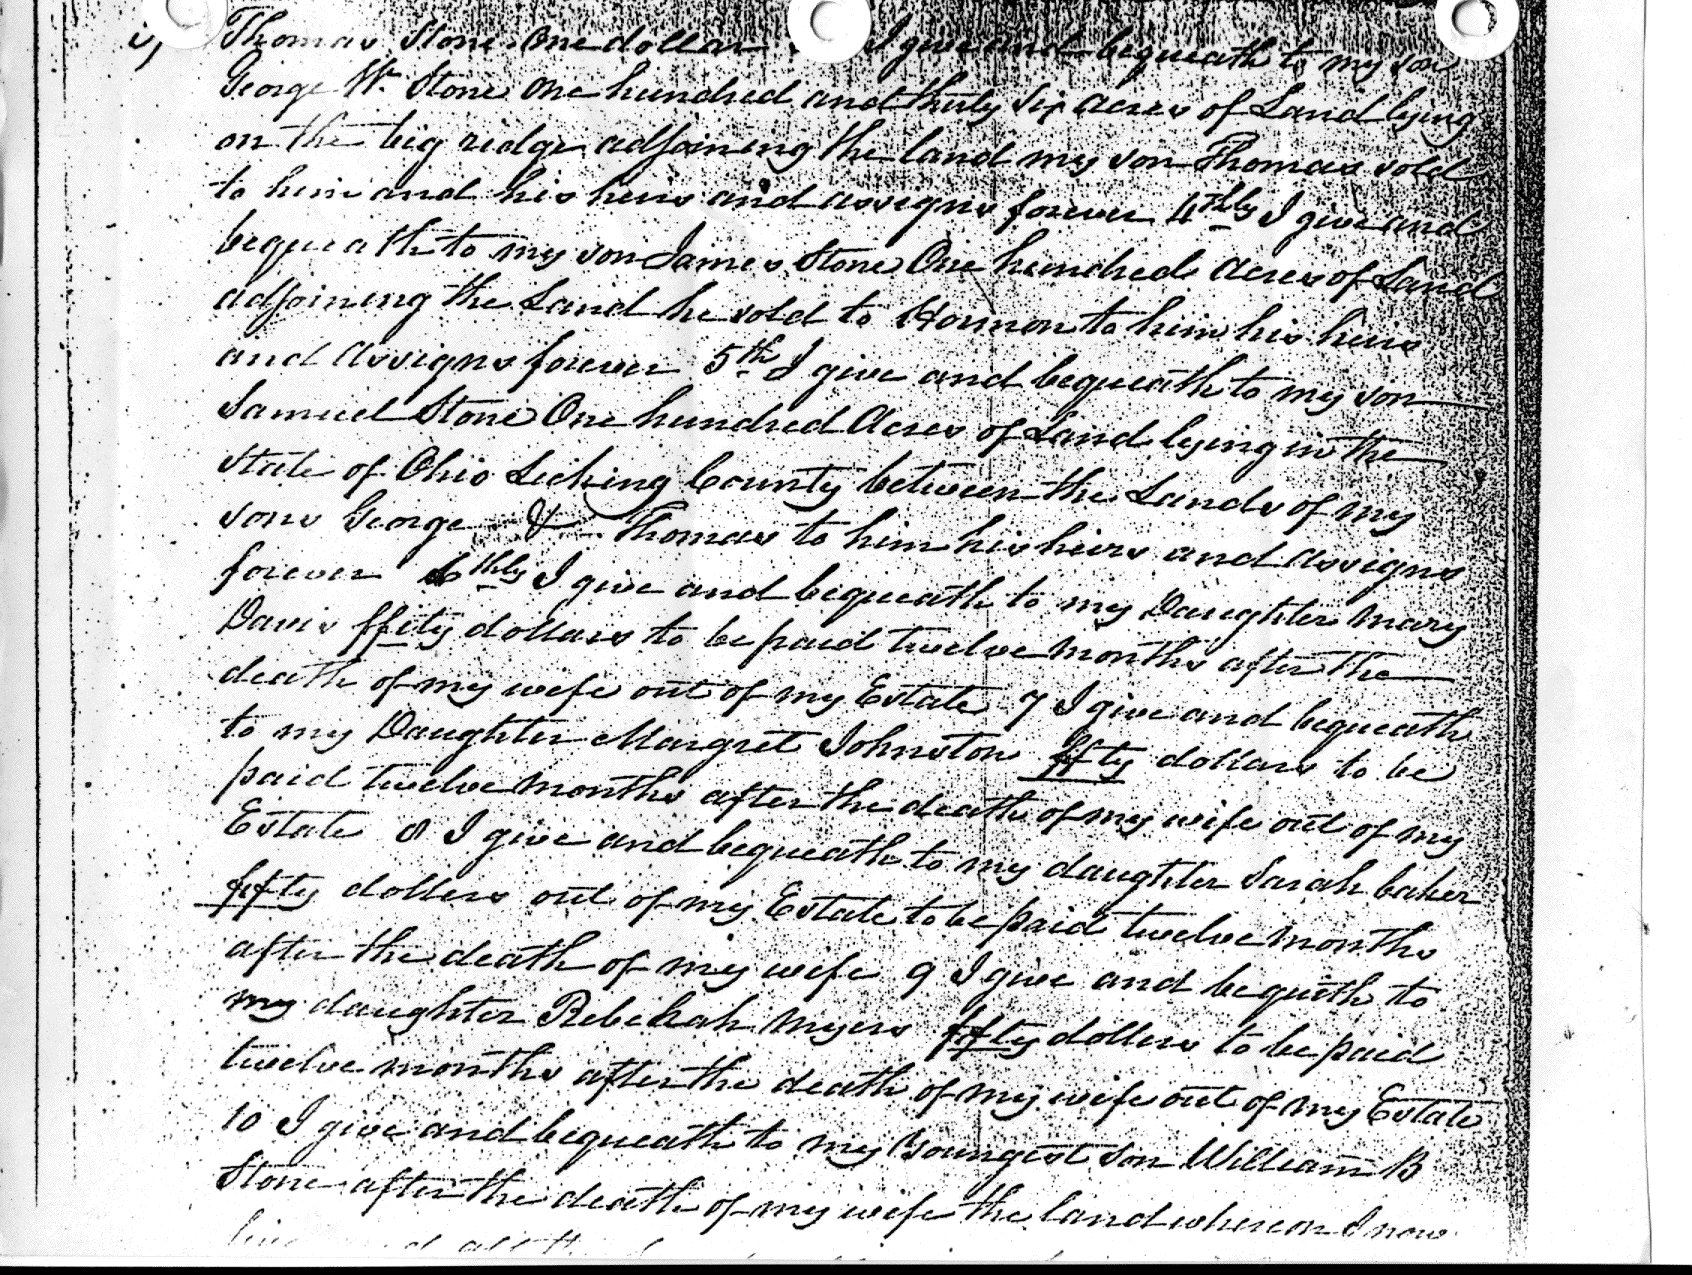 Thomas Stone One dollar I give and bequeath to my son
George W. Stone One hundred and thirty six acres of Land lying
on the big ridge adjoining the land my son Thomas sold
to him and his heirs and assigns forever 4thly I give and
bequeath to my son James Stone One hundred Acres of Land
adjoining the Land he sold to Hormon to him his heirs
and assigns forever 5th I give and bequeath to my son
Samuel Stone One hundred Acres of Land lying in the
State of Ohio Licking County between the Lands of my
sons George & Thomas to him his heirs and assigns
forever 6thly I give and bequeath to my Daughter Mary
Davis ffity dollars to be paid twelve months after the
death of my wife out of my Estate 7 I give and bequeath
to my Daughter Margret Johnston ffty dollars to be
paid twelve months after the death of my wife out of my
Estate 8 I give and bequeath to my daughter Sarah baker
ffty dollers out of my Estate to be paid twelve months
after the death of my wife 9 I give and bequeth to
my daughter Rebekah Myers ffty dollers to be paid
twelve months after the death of my wife out of my Estate
10 I give and bequeath to my Youngest son William B
Stone after the death of my wife the land whereon I now